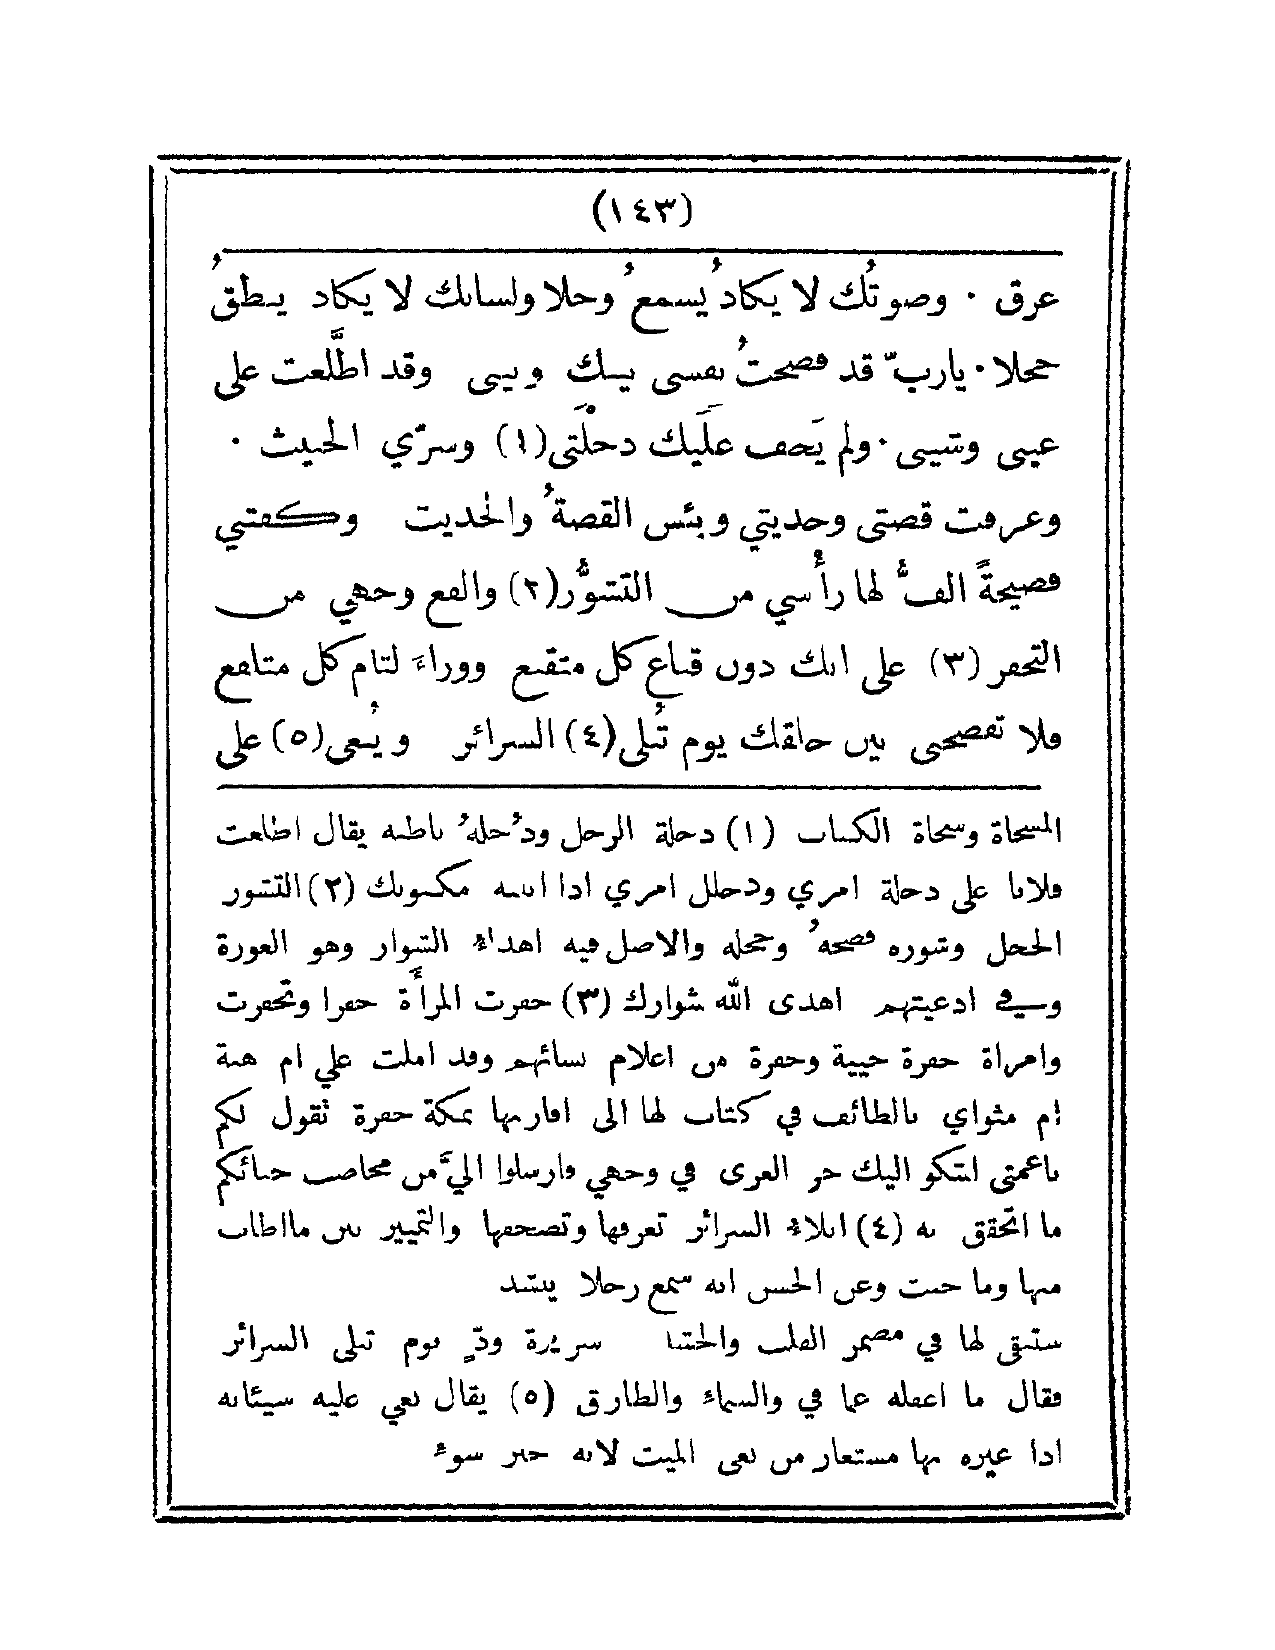 (١٤٣)
عرق · وصوتُك لا يكادُ يُسمعُ وجلا ولسانك لا يكاد ينطقُ
خجلا · يارب قد فضحتُ نفسي بيني وبينك وقد اطَّلعت على
عيبي وشيبي · ولم يَخفَ عليك دخلَتي (١) وسرّي الخبيث ·
وعرفت قصتي وحديثي وبئس القصةُ والحديث وكفتني
فضيحةً الفُّ لها رأسي من التشوُّر (٢) والفع وجهي من
التخفر (٣) على انك دون قناع كل متقنع ووراءَ لثام كل متلفع
فلا تفضحني بين خلقك يوم تُبلى (٤) السرائر ويُنعى (٥) على
المسحاة وسحاة الكتاب (١) دخلة الرجل ودُخلهُ باطنه يقال اطلعت
فلانا على دخلة امري ودخلل امري اذا ابثثته مكنونك (٢) التشور
الخجل وشوره فضحهُ وخجله والاصل فيه ابداء الشوار وهو العورة
وفي ادعيتهم ابدى الله شوارك (٣) خفرت المرأة خفرا وتخفرت
وامرأة خفرة حيية وخفرة من اعلام نسائهم وقد املت علي ام هبة
ام مثواي بالطائف في كتاب لها الى اقاربها بمكة خفرة تقول لكم
ياعمتي اشكو اليك حر العرى في وجهي فارسلوا اليَّ من محاصب حنائكم
ما اتحقق به (٤) ابلاء السرائر تعرفها وتصفحها والتمييز بين مااطاب
منها وما خبث وعن الحسن انه سمع رجلا ينشد
ستبقى لها في مضمر القلب والحشا سريرة ودّ يوم تبلى السرائر
فقال ما اغفله عما في والسماء والطارق (٥) يقال نعي عليه سيئاته
اذا عيره بها مستعار من نعى الميت لانه خبر سوء